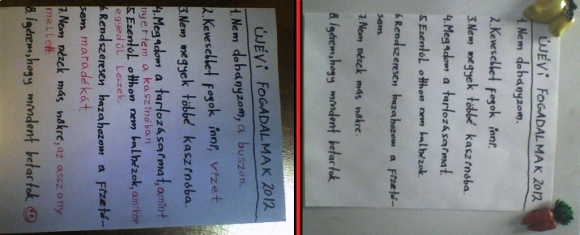 ÚJÉVI FOGADALMAK 2012
1. Nem dohányzom, a buszon.
2. Kevesebbet fogok innı, vizet
3. Nem megyek többé kaszinóba.
4. Megadom a tartozásaimat, amint
nyertem a kaszinóban
5. Ezentúl otthon nem balhézok, amikor
egyedül leszek.
6. Rendszeresen hazahozom a fizeté-
sem maradékát.
7. Nem nézek más nőkre, az asszony
mellett
8. Ígérem, hogy mindent betartok
ÚJÉVI FOGADALMAK 2012
1. Nem dohányzom.
2. Kevesebbet fogok innı.
3. Nem megyek többé kaszinóba.
4. Megadom a tartozásaimat.
5. Ezentúl otthon nem balhézok.
6. Rendszeresen hazahozom a fizeté-
sem.
7. Nem nézek más nőkre.
8. Ígérem, hogy mindent betartok